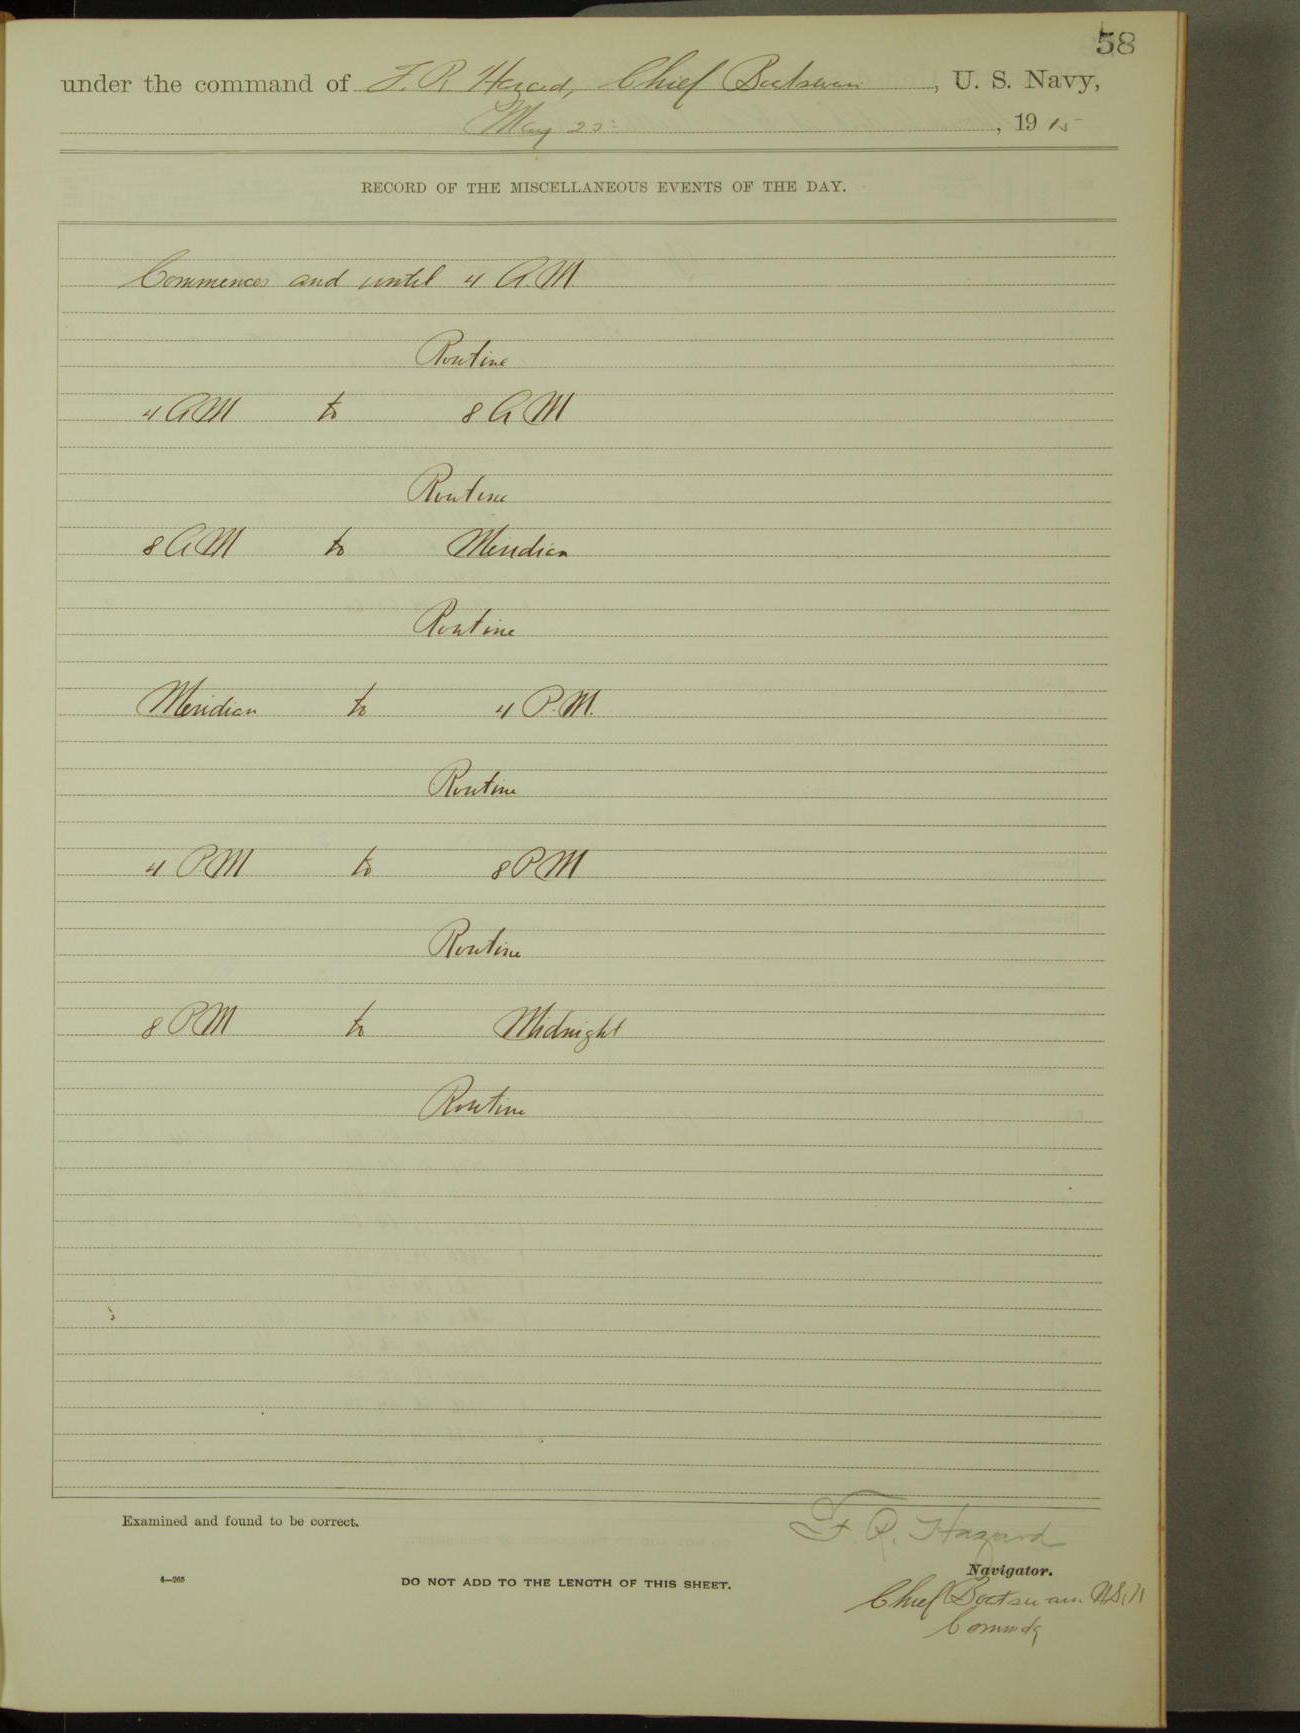 58
under the command of F. R. Hazard, Chief Boatswain, U. S. Navy,
May 1915
RECORD OF THE MISCELLANEOUS EVENTS OF THE DAY.
Commences and until 4 A.M.
Routine
4 AM to 8 AM
Routine
8 AM to Meridian
Routine
Meridian to 4 P.M.
Routine
4 P.M to 8 PM
Routine
8 PM to Midnight
Routine
Examined and found to be correct.
F. R. Hazard
Navigator.
4—265
DO NOT ADD TO THE LENGTH OF THIS SHEET.
Chief Boatswain U.S.N
Commdg